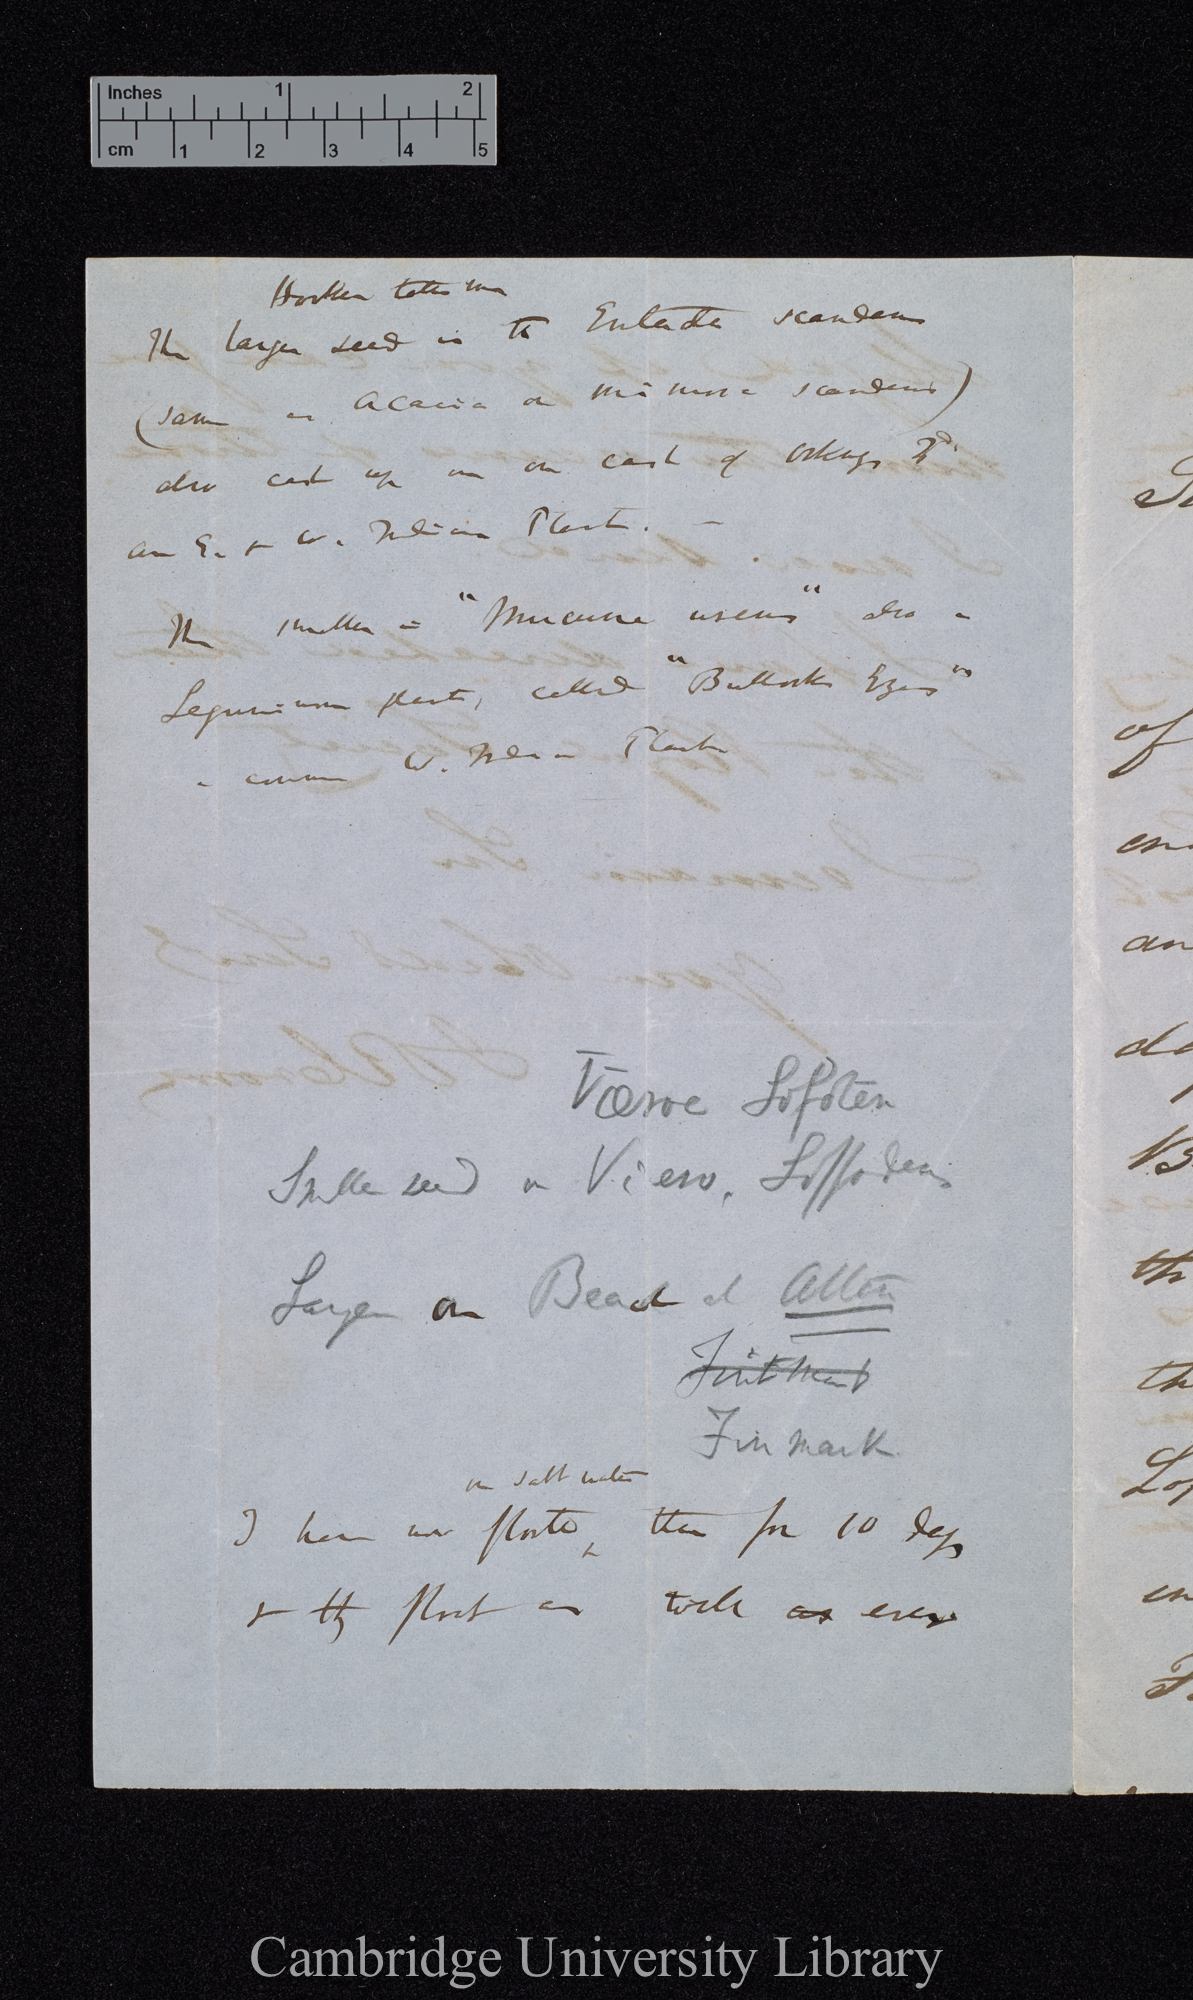 Inches 1 2
cm 1 2 3 4 5
Hooker tells me
The larger seed is the Entada scandens
(same as Acacia or mimosa scandens)
also cast up on on coast of Orkneys Id.
an E. & W. Indian Plant. —
The smaller is "Mucuna urens" also a
Leguminous plant, called "Bullocks Eyes"
a common W. Indian Plant
Væroe Lofoten
Smaller seed on Viero, Loffodens
Larger on Beach at Alten
Finmark
on salt water
I have now floated ‸ them for 10 days
& they float as well as ever
of
an
th
th
Cambridge University Library